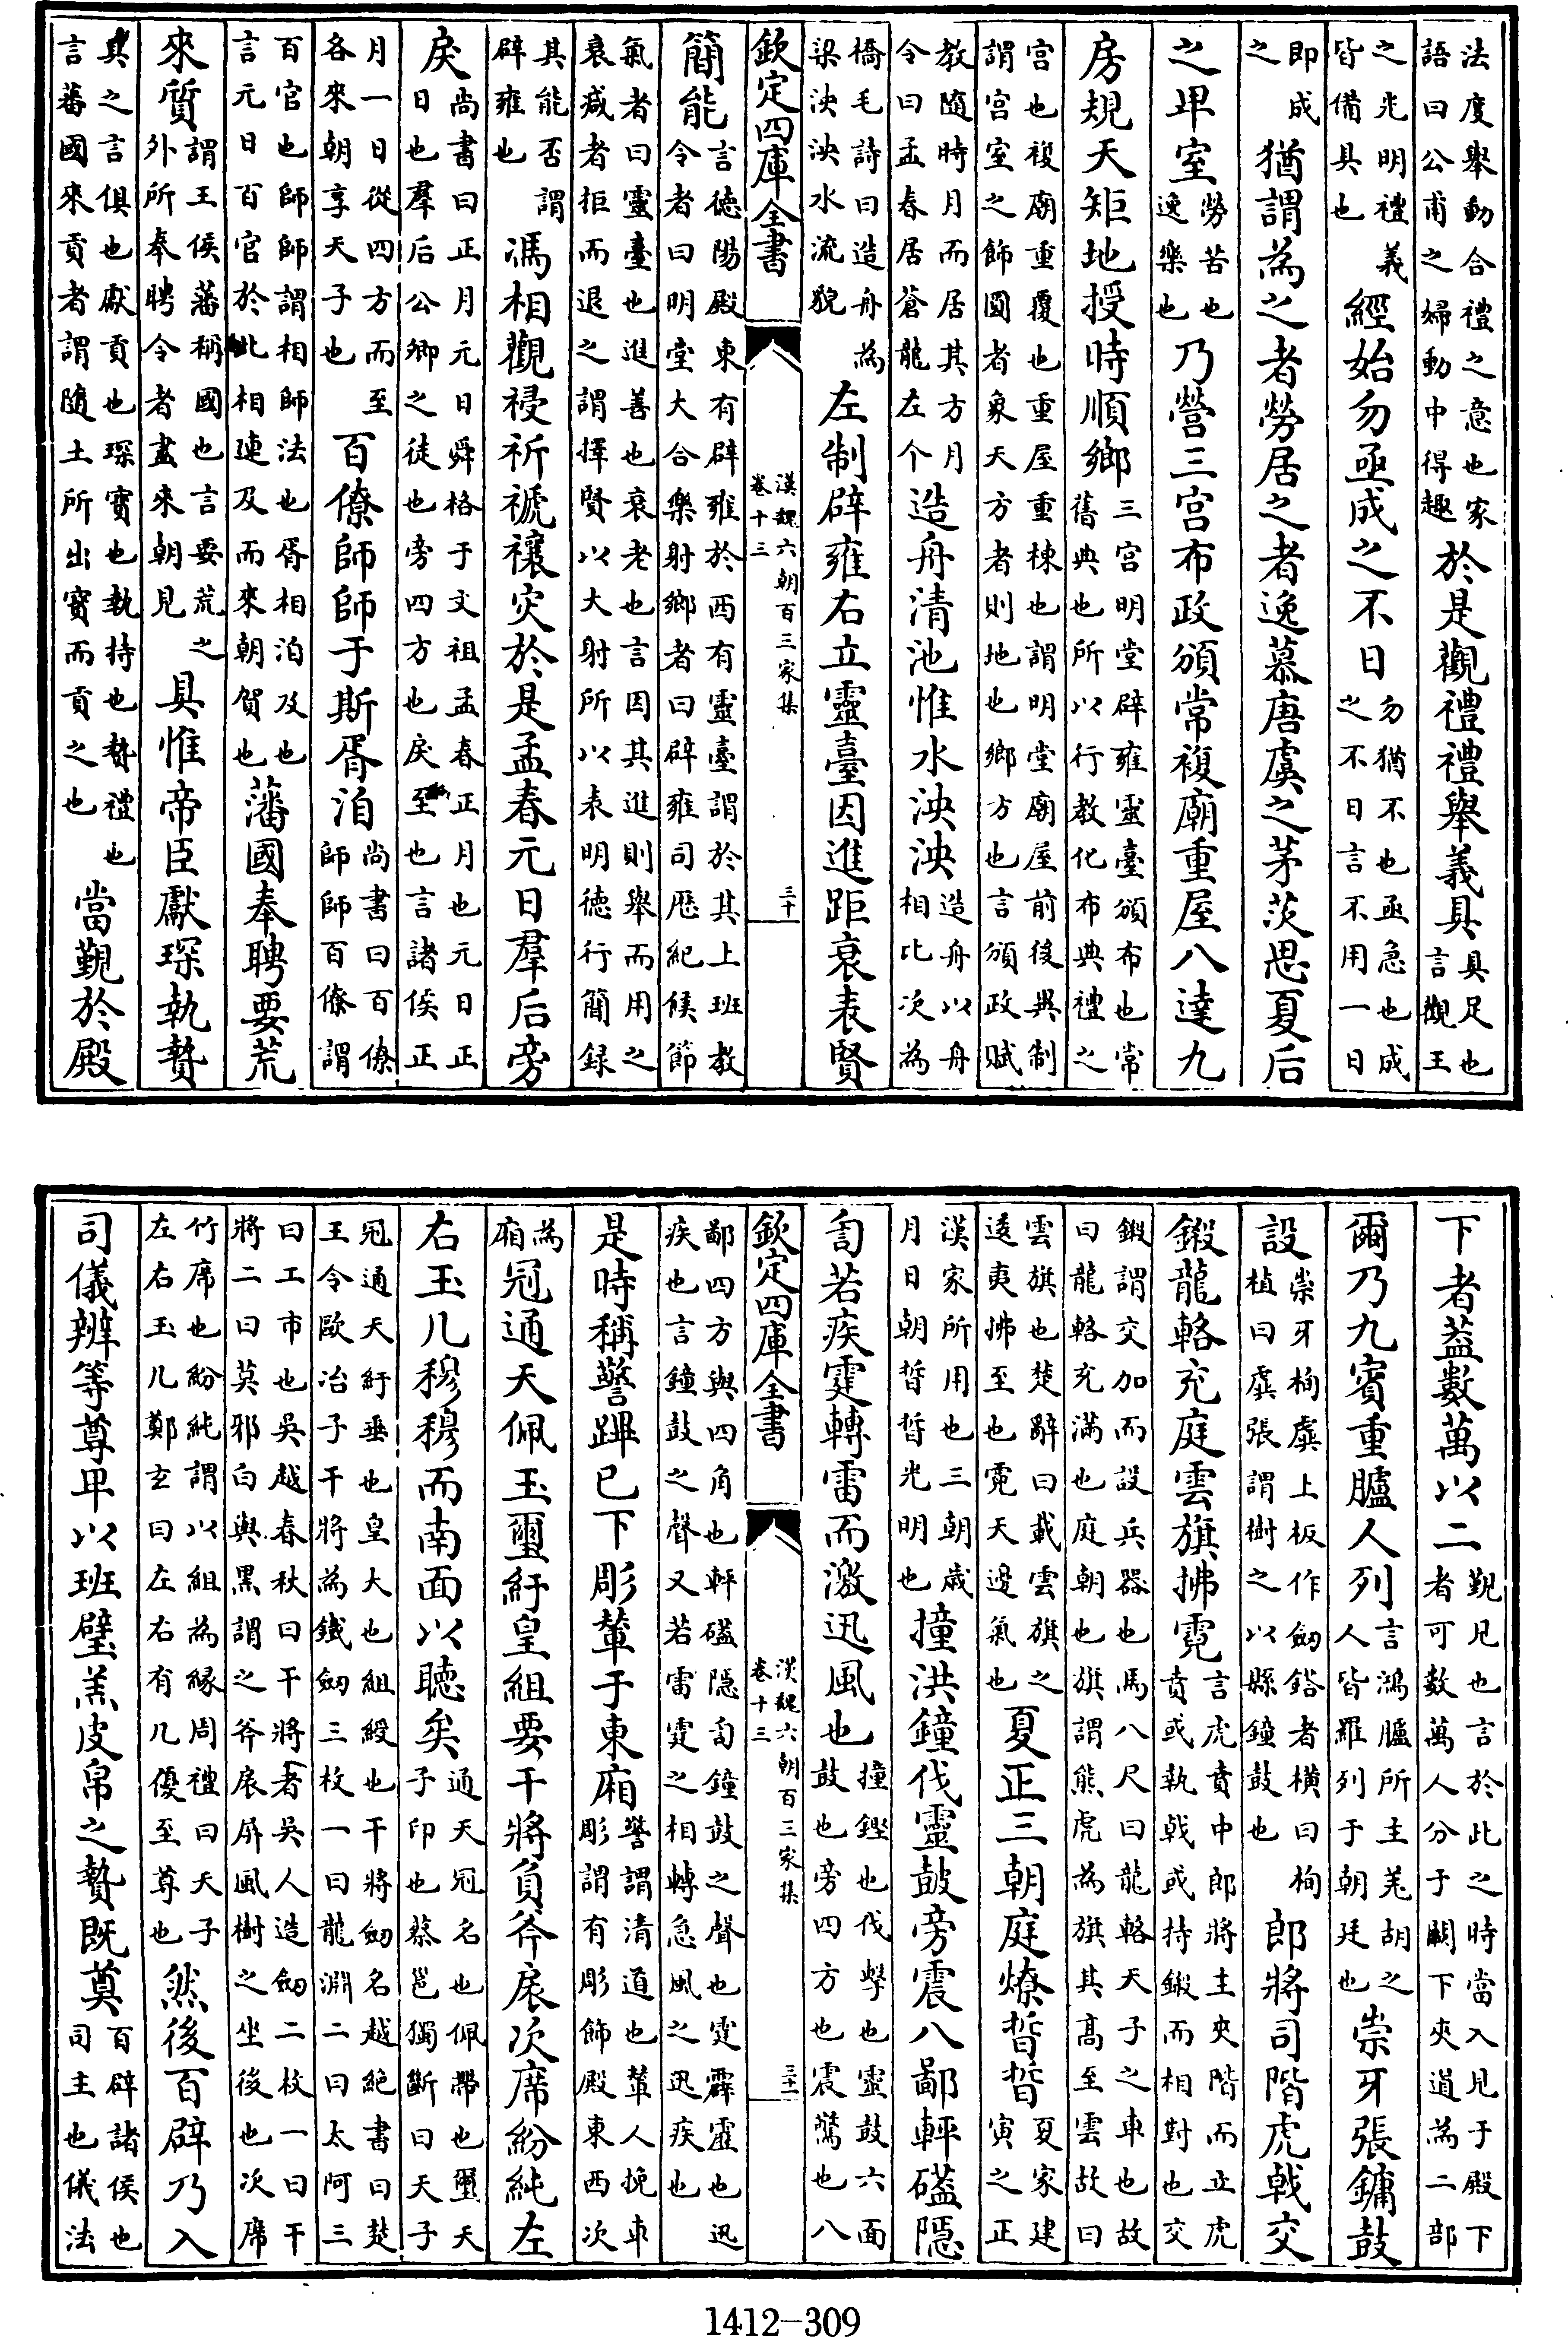 法度舉動合禮之意也家
語曰公甫之婦動中得趣
於是觀禮禮舉義具
具足也
言觀王
之光明禮義
皆備具也
經始勿亟成之不日
勿猶不也亟急也成
之不日言不用一日
即成
之
猶謂為之者勞居之者逸慕唐虞之茅茨思夏后
之卑室
勞苦也
逸樂也
乃營三宫布政頒常複廟重屋八達九
房規天矩地授時順鄉
三宫明堂辟雍靈臺頒布也常
舊典也所以行教化布典禮之
宫也複廟重覆也重屋重棟也謂明堂廟屋前後異制
謂宫室之飾圓者象天方者則地也鄉方也言頒政賦
教隨時月而居其方月
令曰孟春居蒼龍左个
造舟清池惟水泱泱
造舟以舟
相比次為
橋毛詩曰造舟為
梁泱泱水流貌
左制辟雍右立靈臺因進距衰表賢
欽定四庫全書
漢魏六朝百三家集
卷十三
三十
簡能
言徳陽殿東有辟雍於西有靈臺謂於其上班教
令者曰明堂大合樂射鄉者曰辟雍司厯紀候節
氣者曰靈臺也進善也衰老也言因其進則舉而用之
衰减者拒而退之謂擇賢以大射所以表明徳行簡録
其能否謂
辟雍也
馮相觀祲祈禠禳灾於是孟春元日羣后旁
戾
尚書曰正月元日舜格于文祖孟春正月也元日正
日也羣后公卿之徒也旁四方也戾至也言諸侯正
月一日從四方而至
各來朝享天子也
百僚師師于斯胥洎
尚書曰百僚
師師百僚謂
百官也師師謂相師法也胥相洎及也
言元日百官於此相連及而來朝賀也
藩國奉聘要荒
來質
謂王侯藩稱國也言要荒之
外所奉聘令者盡來朝見
具惟帝臣獻琛執贄
具之言俱也獻貢也琛寶也執持也贄禮也
言蕃國來貢者謂隨土所出寳而貢之也
當覲於殿
下者葢數萬以二
覲見也言於此之時當入見于殿下
者可數萬人分于闕下夾道為二部
爾乃九賓重臚人列
言鴻臚所主羌胡之
人皆羅列于朝廷也
崇牙張鏞鼓
設
崇牙栒虡上板作劒鋊者横曰栒
植曰虡張謂樹之以縣鐘鼓也
郎將司階虎戟交
鎩龍輅充庭雲旗拂霓
言虎賁中郎將主夾階而立虎
賁或執戟或持鎩而相對也交
鎩謂交加而設兵器也馬八尺曰龍輅天子之車也故
曰龍輅充滿也庭朝也旗謂熊虎為旗其髙至雲故曰
雲旗也楚辭曰載雲旗之
逶夷拂至也霓天邊氣也
夏正三朝庭燎晢晢
夏家建
寅之正
漢家所用也三朝歲
月日朝晢晢光明也
撞洪鐘伐靈鼓旁震八鄙軯磕隱
訇若疾霆轉雷而激迅風也
撞鏗也伐擊也靈鼓六面
鼓也旁四方也震驚也八
欽定四庫全書
漢魏六朝百三家集
卷十三
三十一
鄙四方與四角也軯磕隱訇鐘鼓之聲也霆霹靂也迅
疾也言鐘鼓之聲又若雷霆之相轉急風之迅疾也
是時稱警蹕已下彫輦于東廂
警謂清道也輦人挽車
彫謂有彫飾殿東西次
為
廂
冠通天佩玉璽紆皇組要干將負斧扆次席紛純左
右玉几穆穆而南面以聽矣
通天冠名也佩帶也璽天
子印也蔡邕獨斷曰天子
冠通天紆垂也皇大也組綬也干將劒名越絶書曰楚
王令歐冶子干將為鐵劒三枚一曰龍淵二曰太阿三
曰工市也吳越春秋曰干將者吳人造劒二枚一曰干
將二曰莫邪白與黒謂之斧扆屏風樹之坐後也次席
竹席也紛純謂以組為緣周禮曰天子
左右玉几鄭玄曰左右有几優至尊也
然後百辟乃入
司儀辨等尊卑以班璧羔皮帛之贄既奠
百辟諸侯也
司主也儀法
1412-309